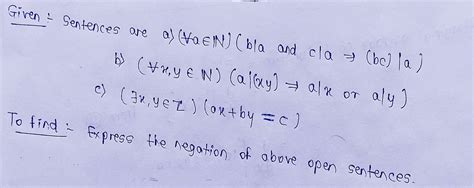 Given :- Sentences are a) (∀a∈ℕ) (b|a and c|a → (bc)|a)
b) (∀x,y ∈ ℕ) (a|(xy) → a|x or a|y)
c) (∃x,y∈Z) (ax+by = c)
To find :- Express the negation of above open sentences.